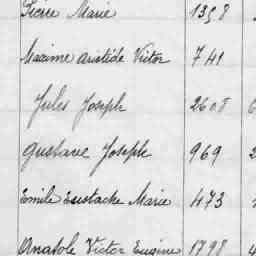 Pierre Marie 1398
Maxime Aristide Victor 741
Jules Joseph 2608
Gustave Joseph 969
Emile Eustache Marie 473
Anatole Victor Eugène 1798